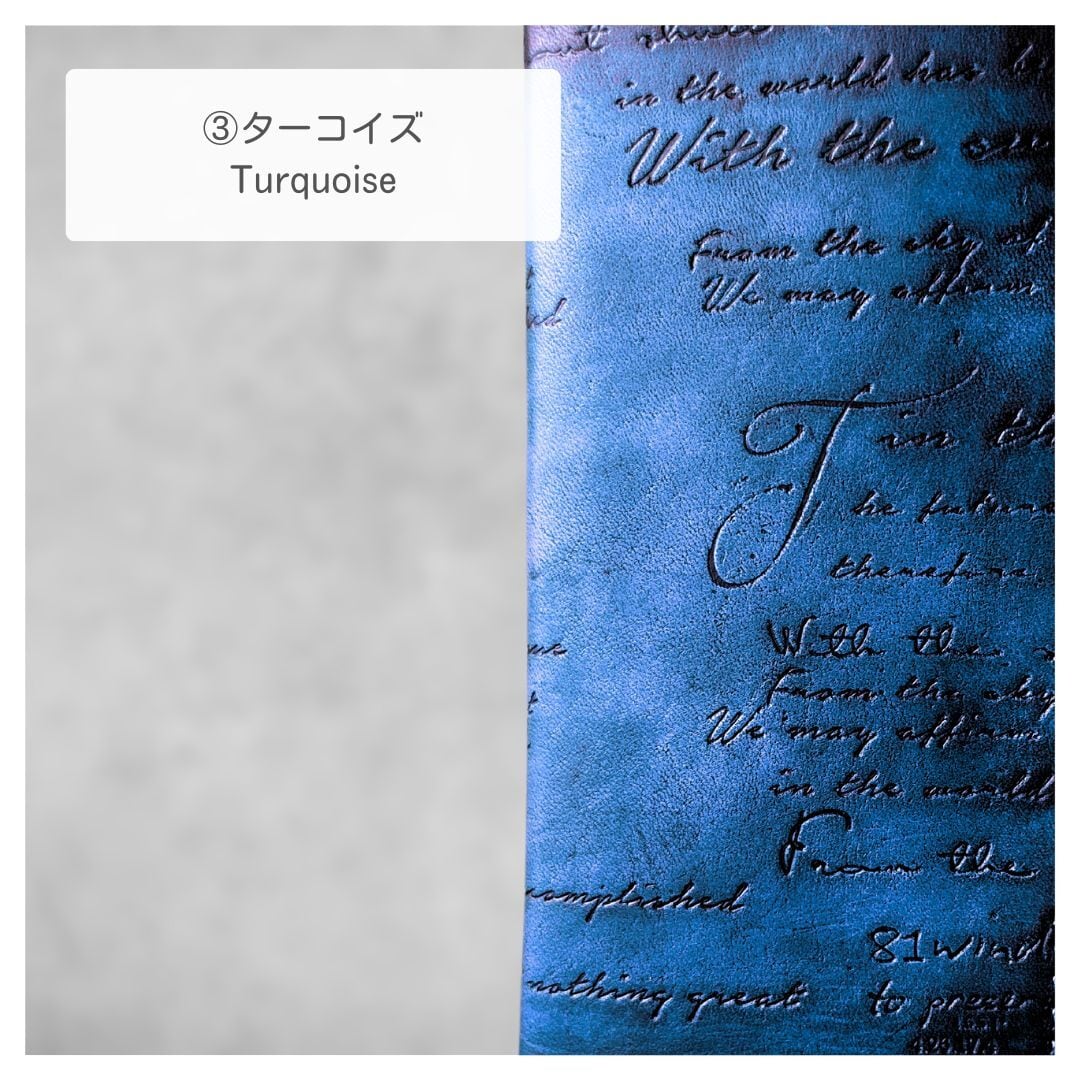 ③ターコイズ
Turquoise
but shall
in the world has
With the
From the sky of
We may affirm
T in
he future
therefore
With the
From the sky
We may affirm
in the world
From the
complished
81wind
nothing great to